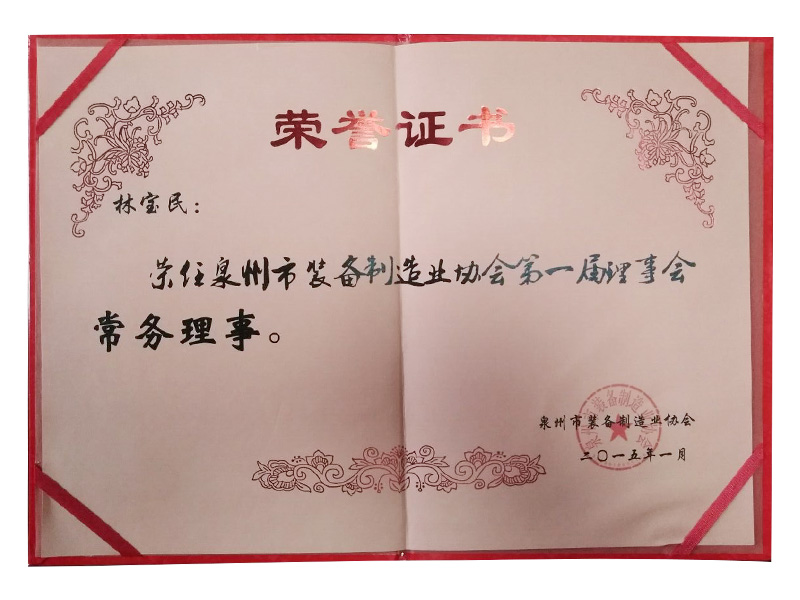 荣誉证书
林宝民：
荣任泉州市装备制造业协会第一届理事会
常务理事。
泉州市装备制造业协会
二〇一五年一月